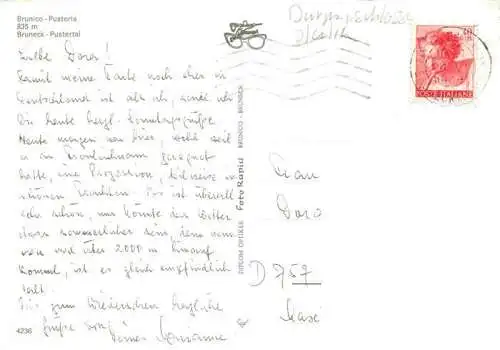 Brunico - Pusteria
835 m
Bruneck - Pustertal
Liebe Dora!
Damit meine Karte noch eher in
Deutschland ist als ich, sende ich
Dir heute herzl. Sonntagsgrüße.
Heute morgen war hier, wohl weil
es an Fronleichnam geregnet
hatte, eine Prozession, teilweise in
schönen Trachten. Es ist überall
sehr schön, nur könnte das Wetter
etwas sommerlicher sein, denn wenn
man mal über 2000 m hinauf
kommt, ist es gleich empfindlich
kalt.
Bis zum Wiedersehen herzliche
Grüße von Deiner Marianne
4236
DIPLOM OPTIKER Foto Rapid BRUNICO - BRUNECK
POSTE ITALIANE
Frau
Dora
D 757